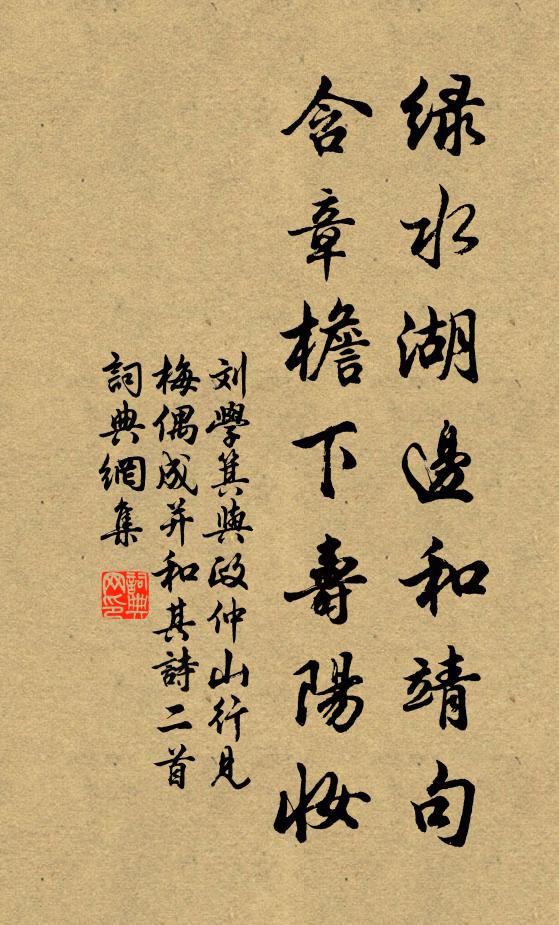 绿水湖邊和靖句
含章檐下壽陽妝
刘學箕與政仲山行見
梅偶成并和其詩二首
詞典網集
詞典网印